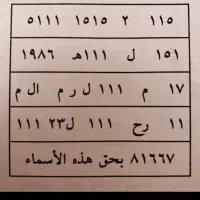 ١١٥ ٢ ١٥١٥ ٥١١١
١٥١ ل ١١١هـ ١٩٨٦
١٧ م ١١١ ل ر م ال م
١١ رح ١١١ ل٢٣ ١١١
٨١٦٦٧ بحق هذه الأسماء